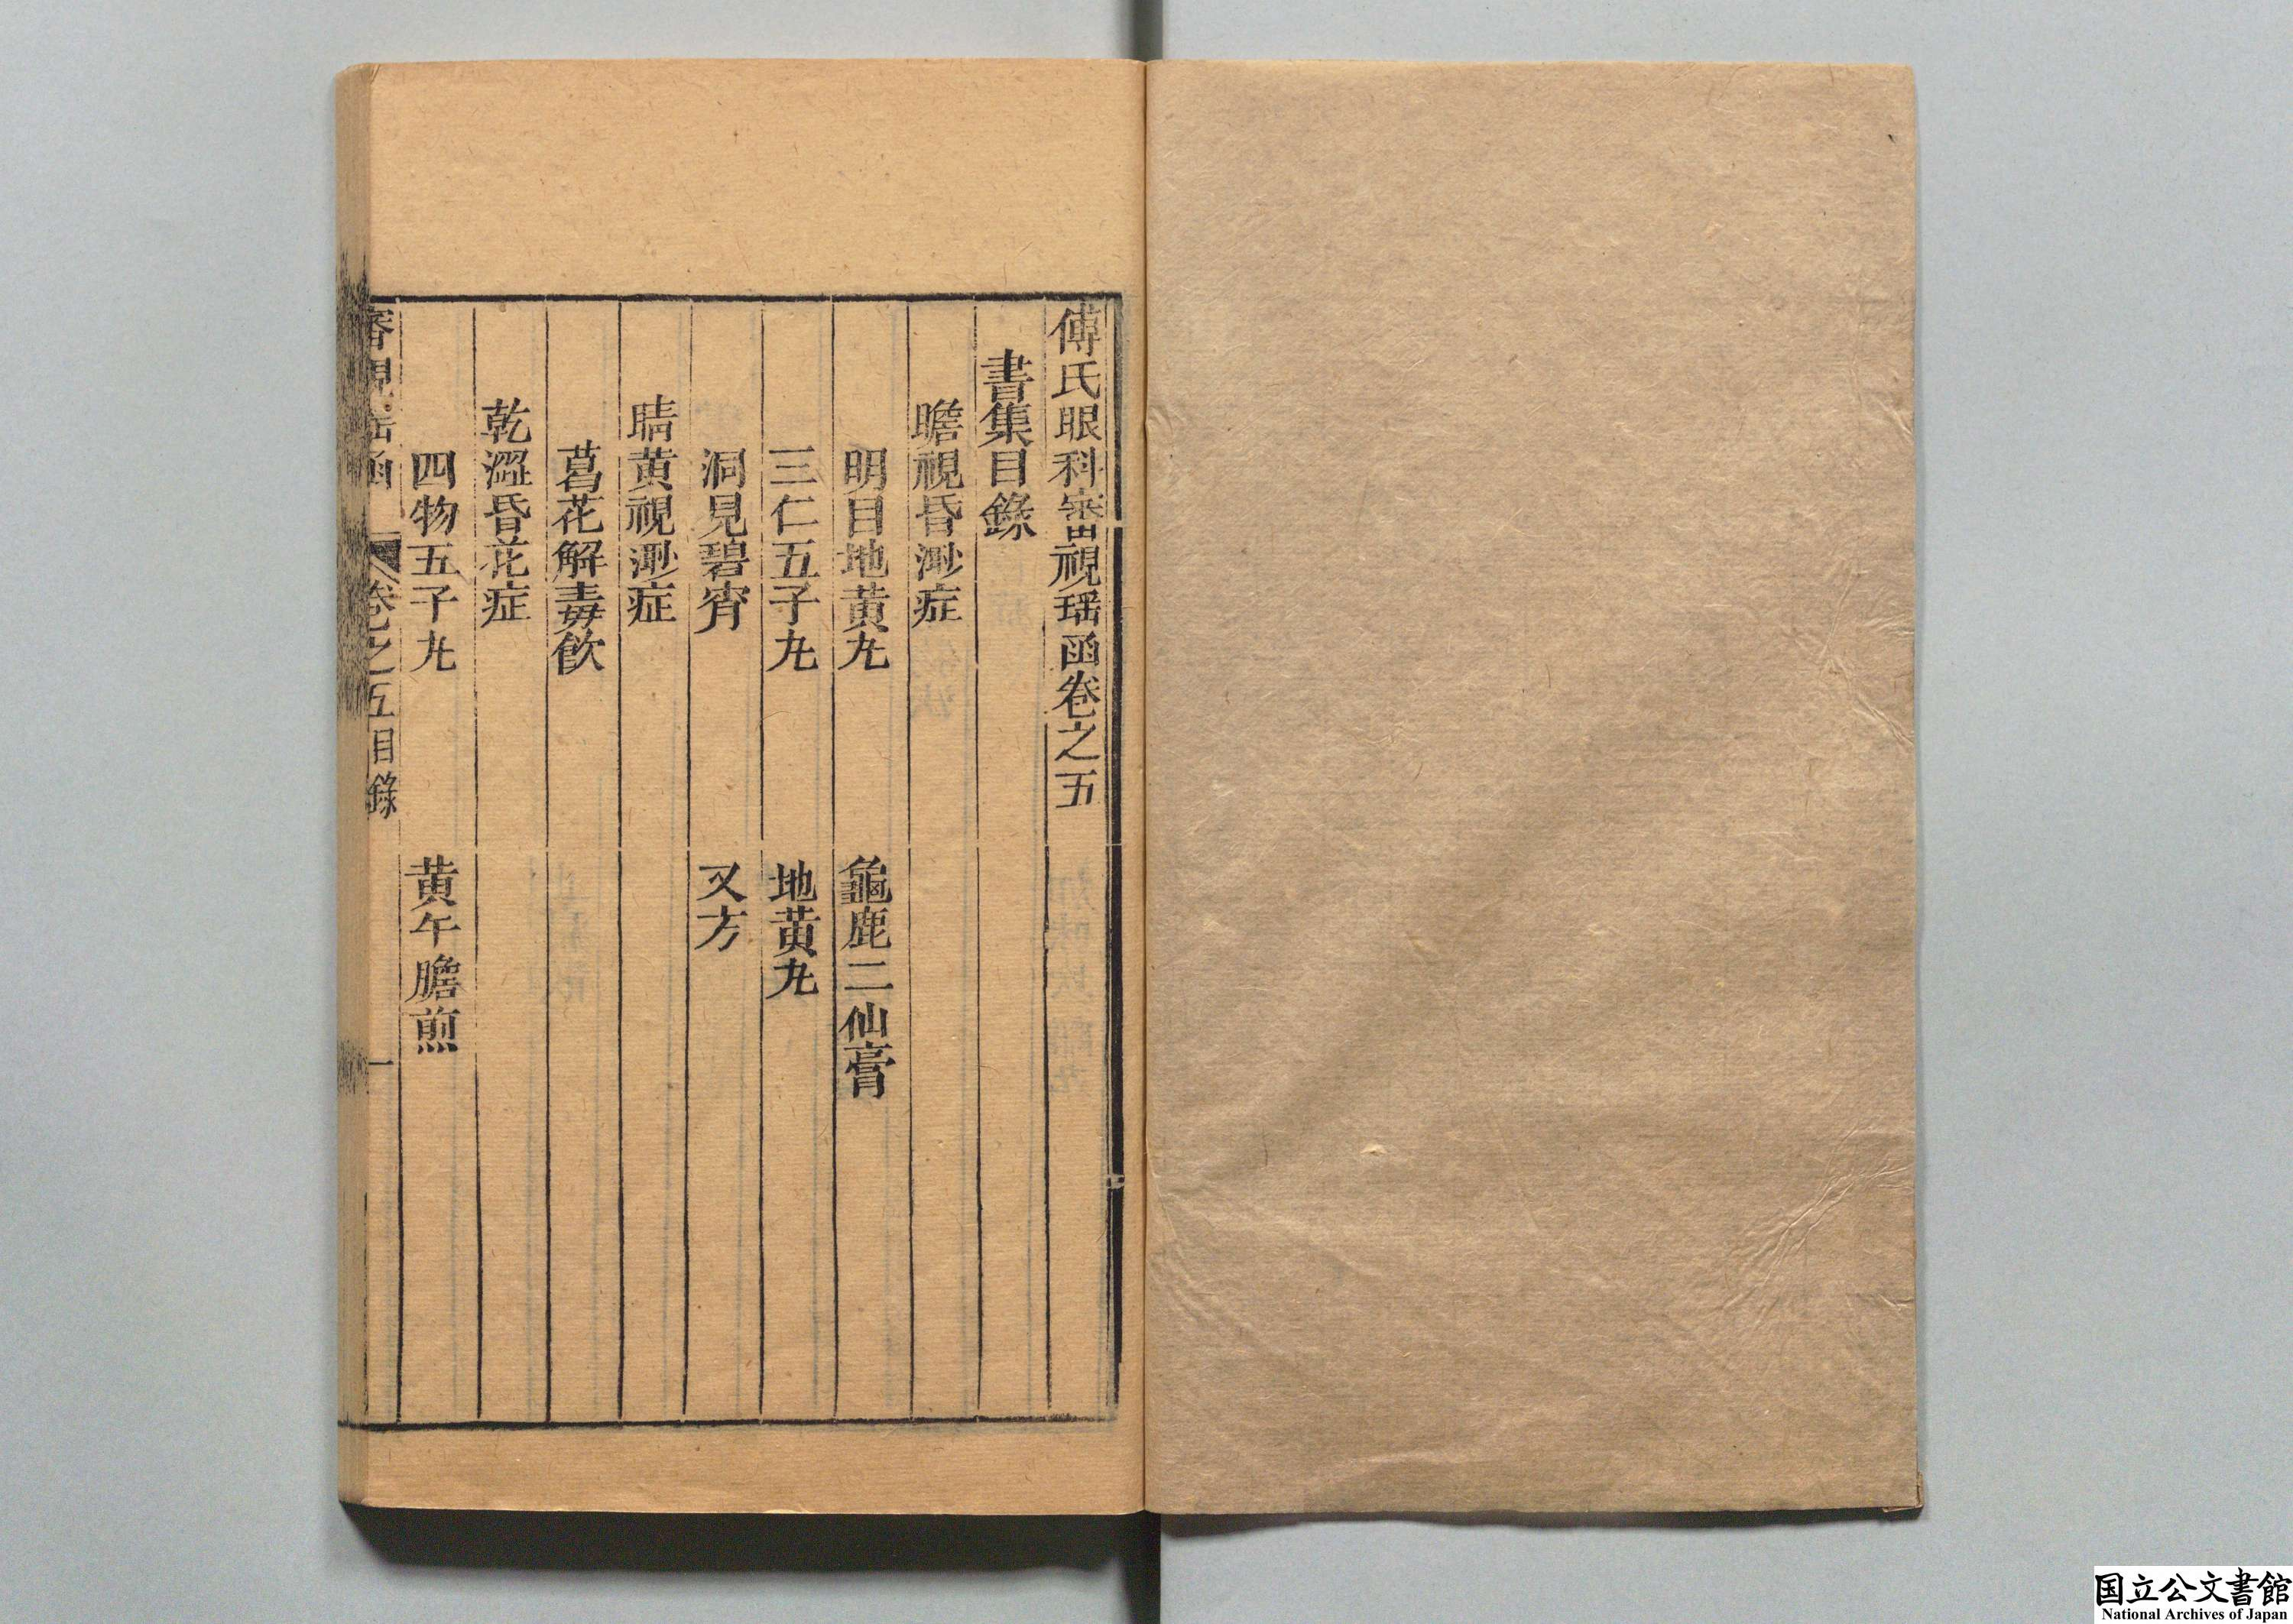 傅氏眼科審視瑶函卷之五
書集目錄
瞻視昏渺症
明目地黄丸 龜鹿二仙膏
三仁五子丸 地黄丸
洞見碧霄 又方
睛黄視渺症
葛花解毒飲
乾澀昏花症
四物五子丸 黄牛膽煎
審視瑶函 卷之五目錄 一
国立公文書館
National Archives of Japan